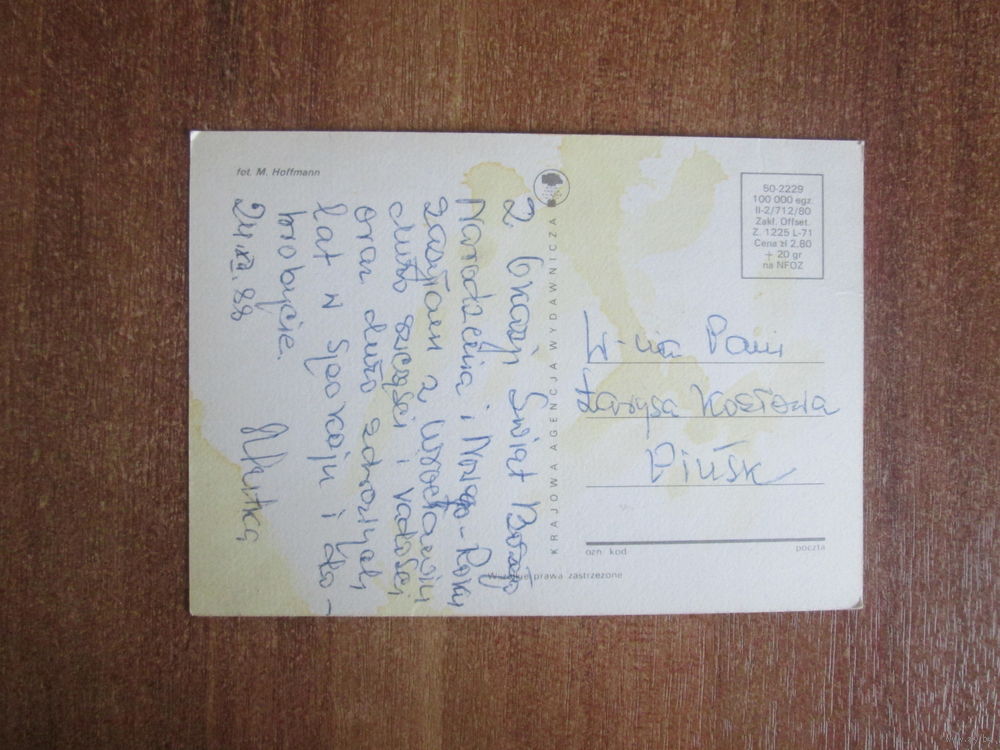 fot. M. Hoffmann
Z okazji Świąt Bożego
Narodzenia i Nowego-Roku
zasyłam z Wrocławia
dużo szczęści i radości
oraz dużo
Lat w spokoju i do-
brobycie.
24.XII.88
KRAJOWA AGENCJA WYDAWNICZA
50-2229
100 000 egz.
II-2/712/80
Zakł. Offset.
Z. 1225 L-71
Cena zł 2.80
+ 20 gr
na NFOZ
Pani
Łarysa Kozłowa
Pińsk
ozn. kod
poczta
Wszelkie prawa zastrzeżone